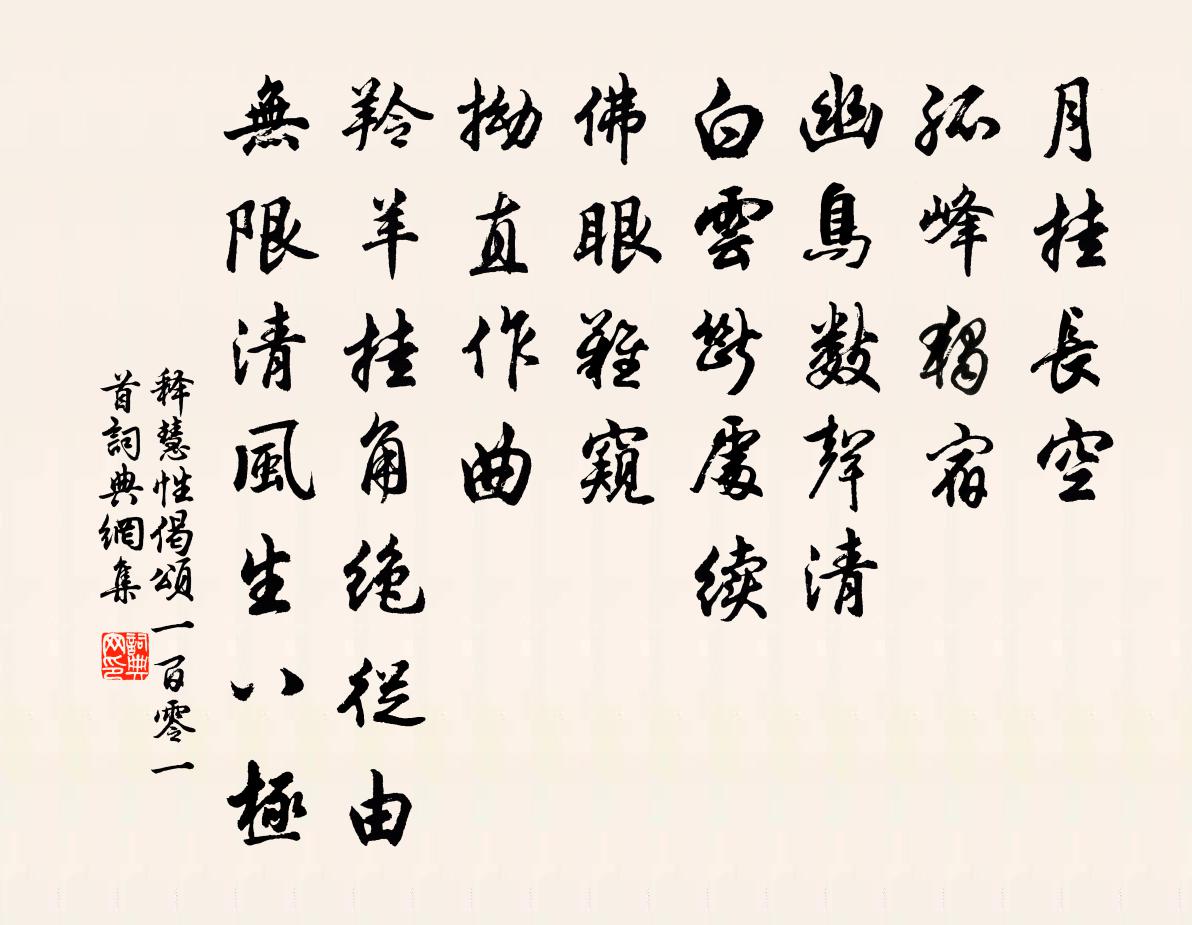 月挂長空
孤峰獨宿
幽鳥數聲清
白雲斷處续
佛眼難窺
拗直作曲
羚羊挂角絶從由
無限清風生八極
释慧性偈頌一百零一
首詞典網集
詞典
网印